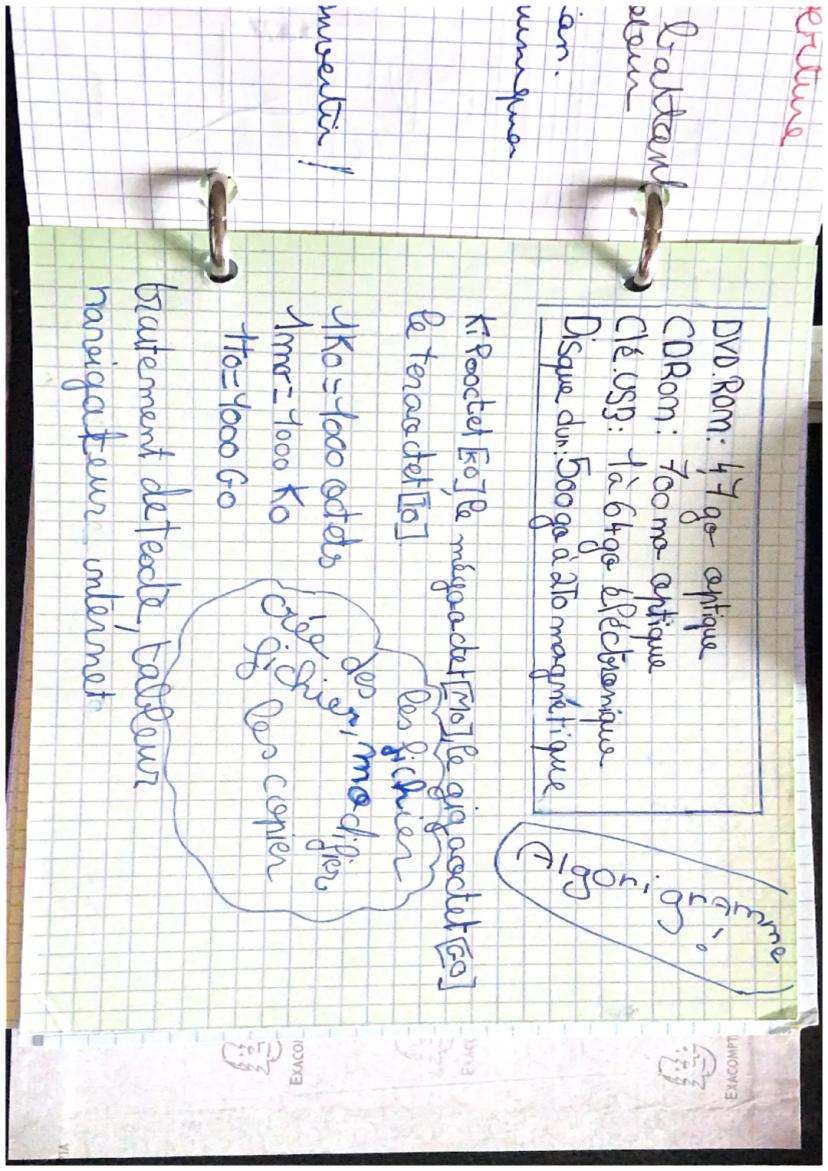 erture
battant
ien.
inventir !
DVD.Rom: 4,7 go optique
CDRom: 700 mo optique
Clé.USB: 1 à 64 go électronique
Disque dur: 500 go à 2To magnétique
Algorigramme
Kilooctet [Ko] le mégaoctet [Mo] le gigaoctet [Go]
le teraoctet [To]
1Ko = 1000 octets
1mo = 1000 Ko
1To = 1000 Go
les fichier
des
crée fichier, modifier
les copier
traitement de texte, tableur
navigateur internet
EXACOMPT
EXAC
EXACO